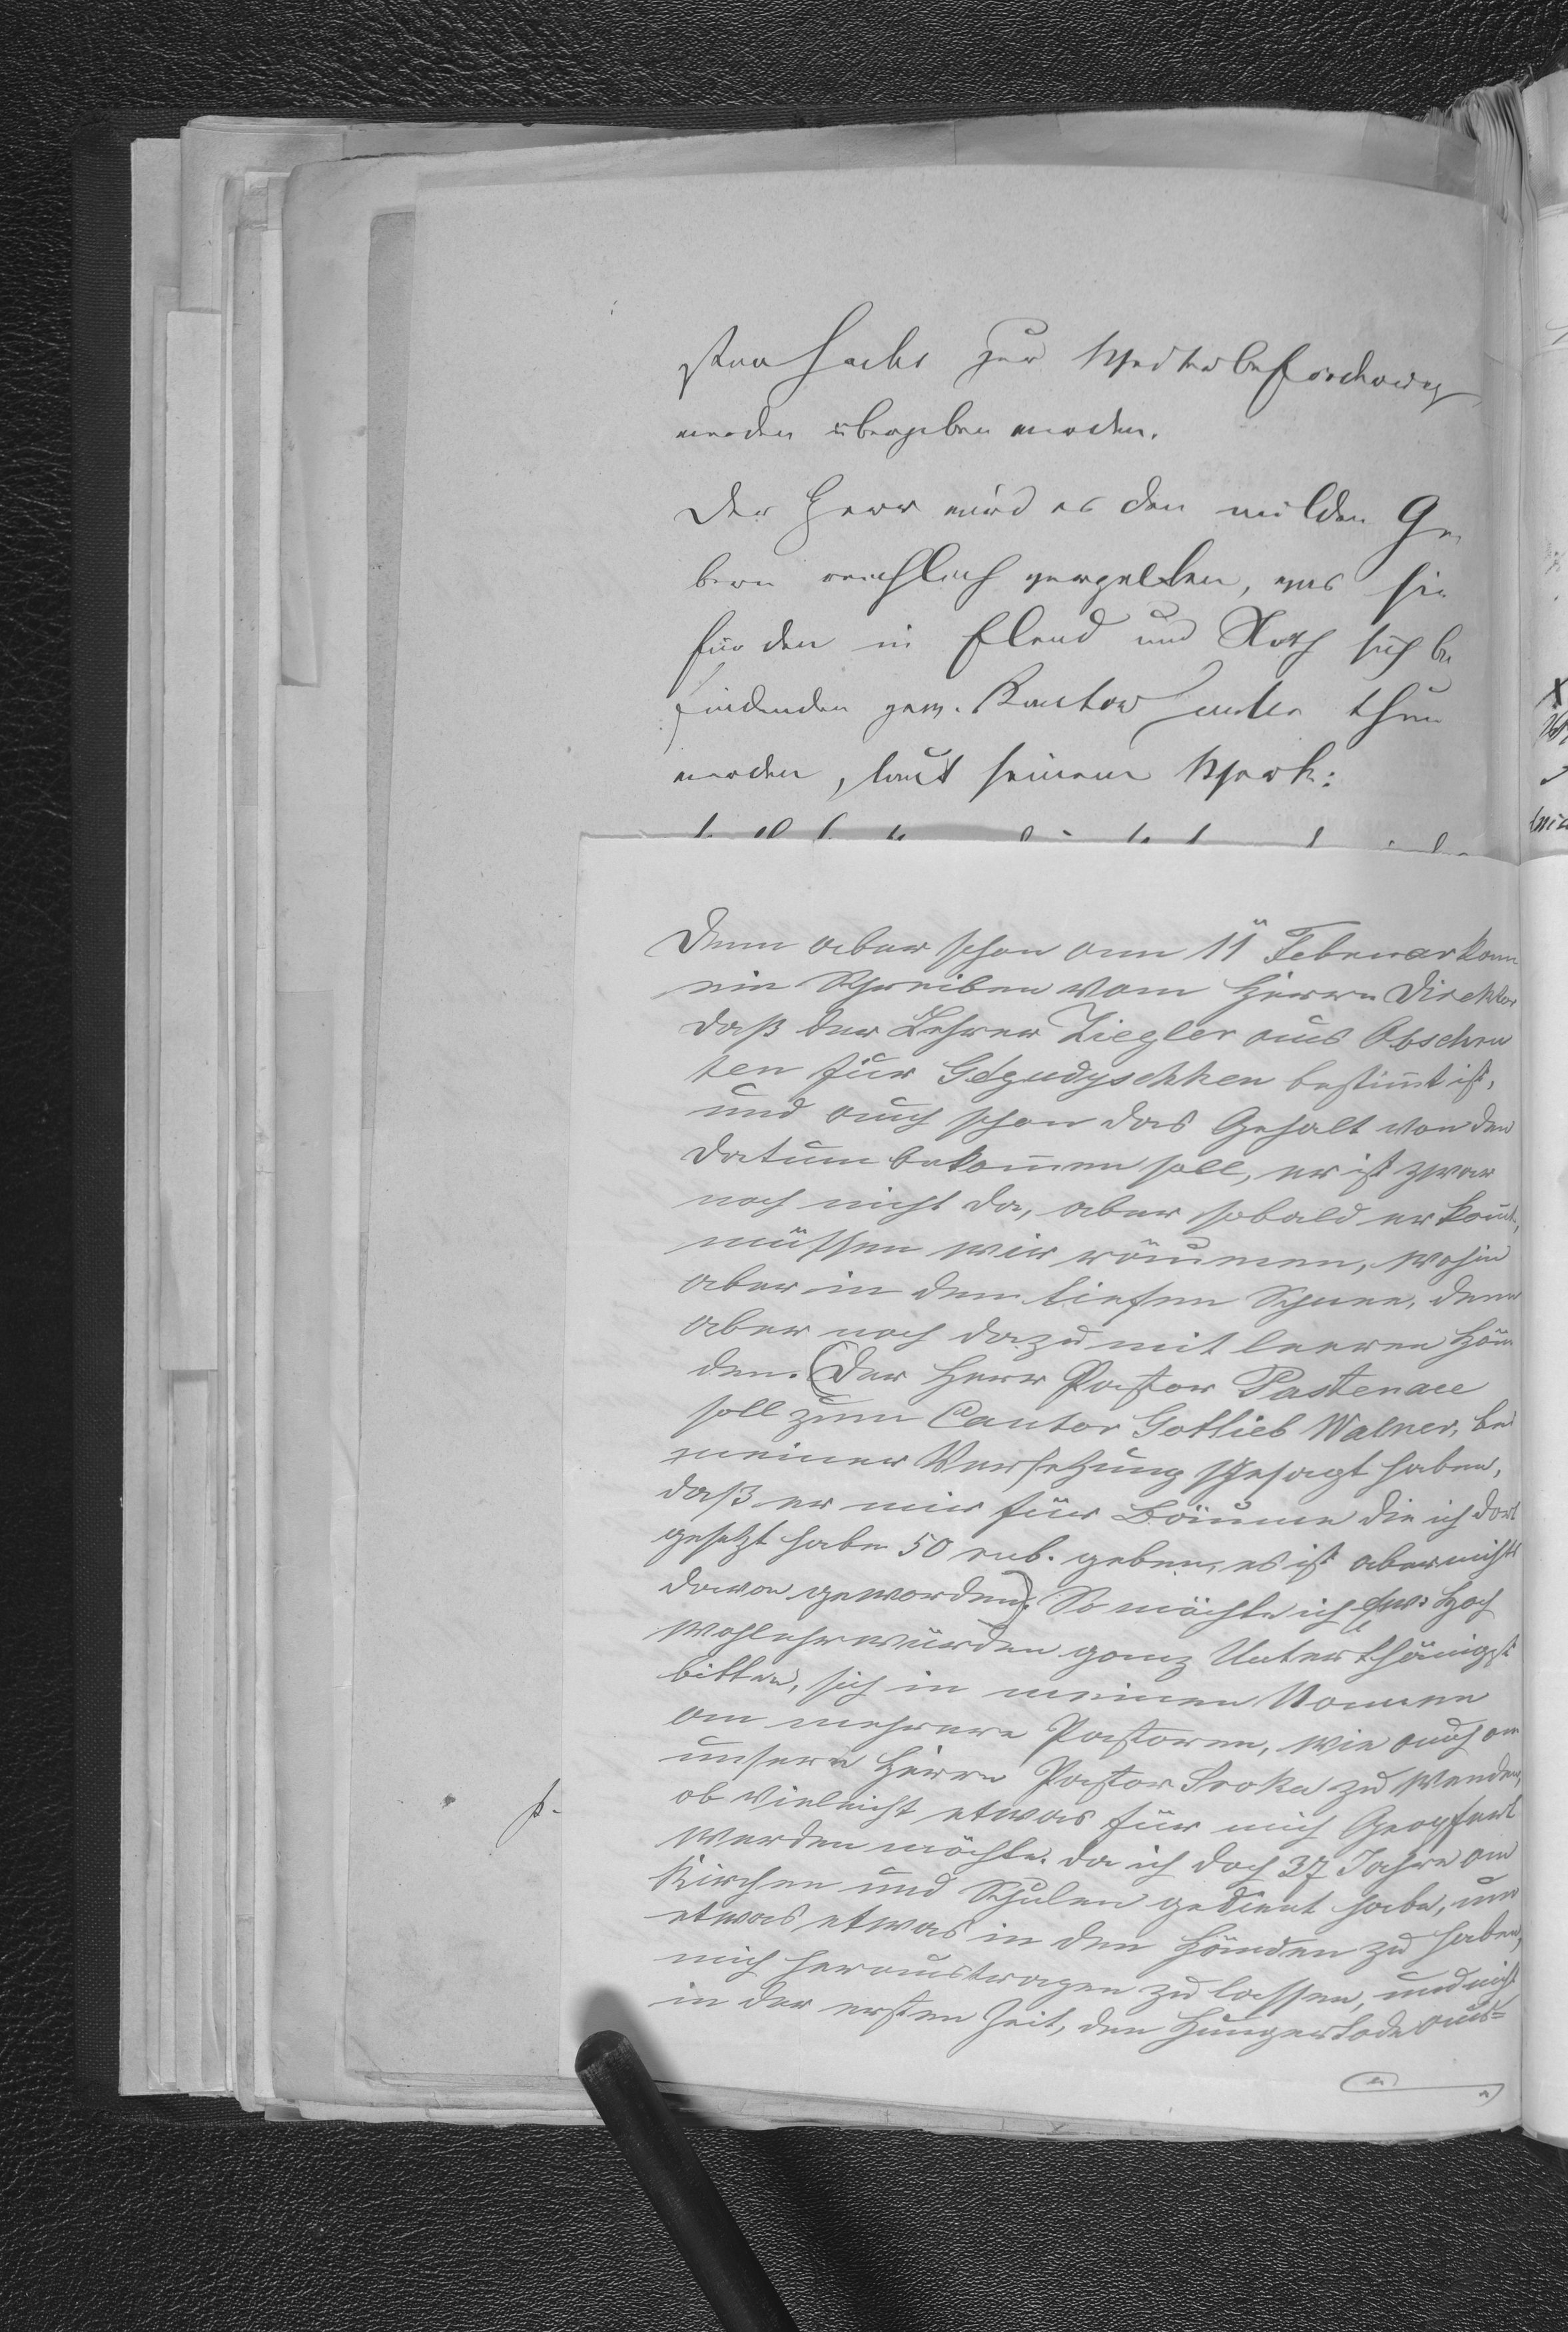 stor Sachs zur Weiterbeförderung
werden übergeben werden.
Der Herr wird es den milden Ge
bern reichlich vergelten, was sie
für den in Elend und Noth sich be
findenden gew. Kantor
werden, laut seinem Wort:
Denn aber schon am 11 Februar kam
ein Schreiben vom Herrn Direktor
daß der Lehrer Ziegler aus Abschru
ten für Gdgudyschken bestimt ist,
und auch schon das Gehalt von den
Datum bekomen soll, er ist zwar
noch nicht da, aber sobald er komt,
müssen wir räumen, wohin
aber in dem tiefen Schnee, denn
aber noch dazu mit leeren Hän
den. (Der Herr Pastor Pastenaee
soll zum Cantor Gottlieb Walner, bei
meiner Versetzung gesagt haben,
daß er mir für Bäume die ich dort
gesetzt habe 50 rub. geben, es ist aber nichts
davon geworden). So möchte ich Ew: Hoch
wohlehrwürden ganz Unterthänigst
bitten, sich in meinen Namen
an mehrere Pastoren, wie auch an
unsern Herrn Pastor Sroka zu wenden,
ob vieleicht etwas für mich Geopfert
p.
werden möchte. da ich doch 37 Jahre an
Kirchen und Schulen gedient habe, um
etwas etwas in den Händen zu haben,
mich heraustragen zu lassen, und nicht
in der ersten Zeit, den Hungertode aus=